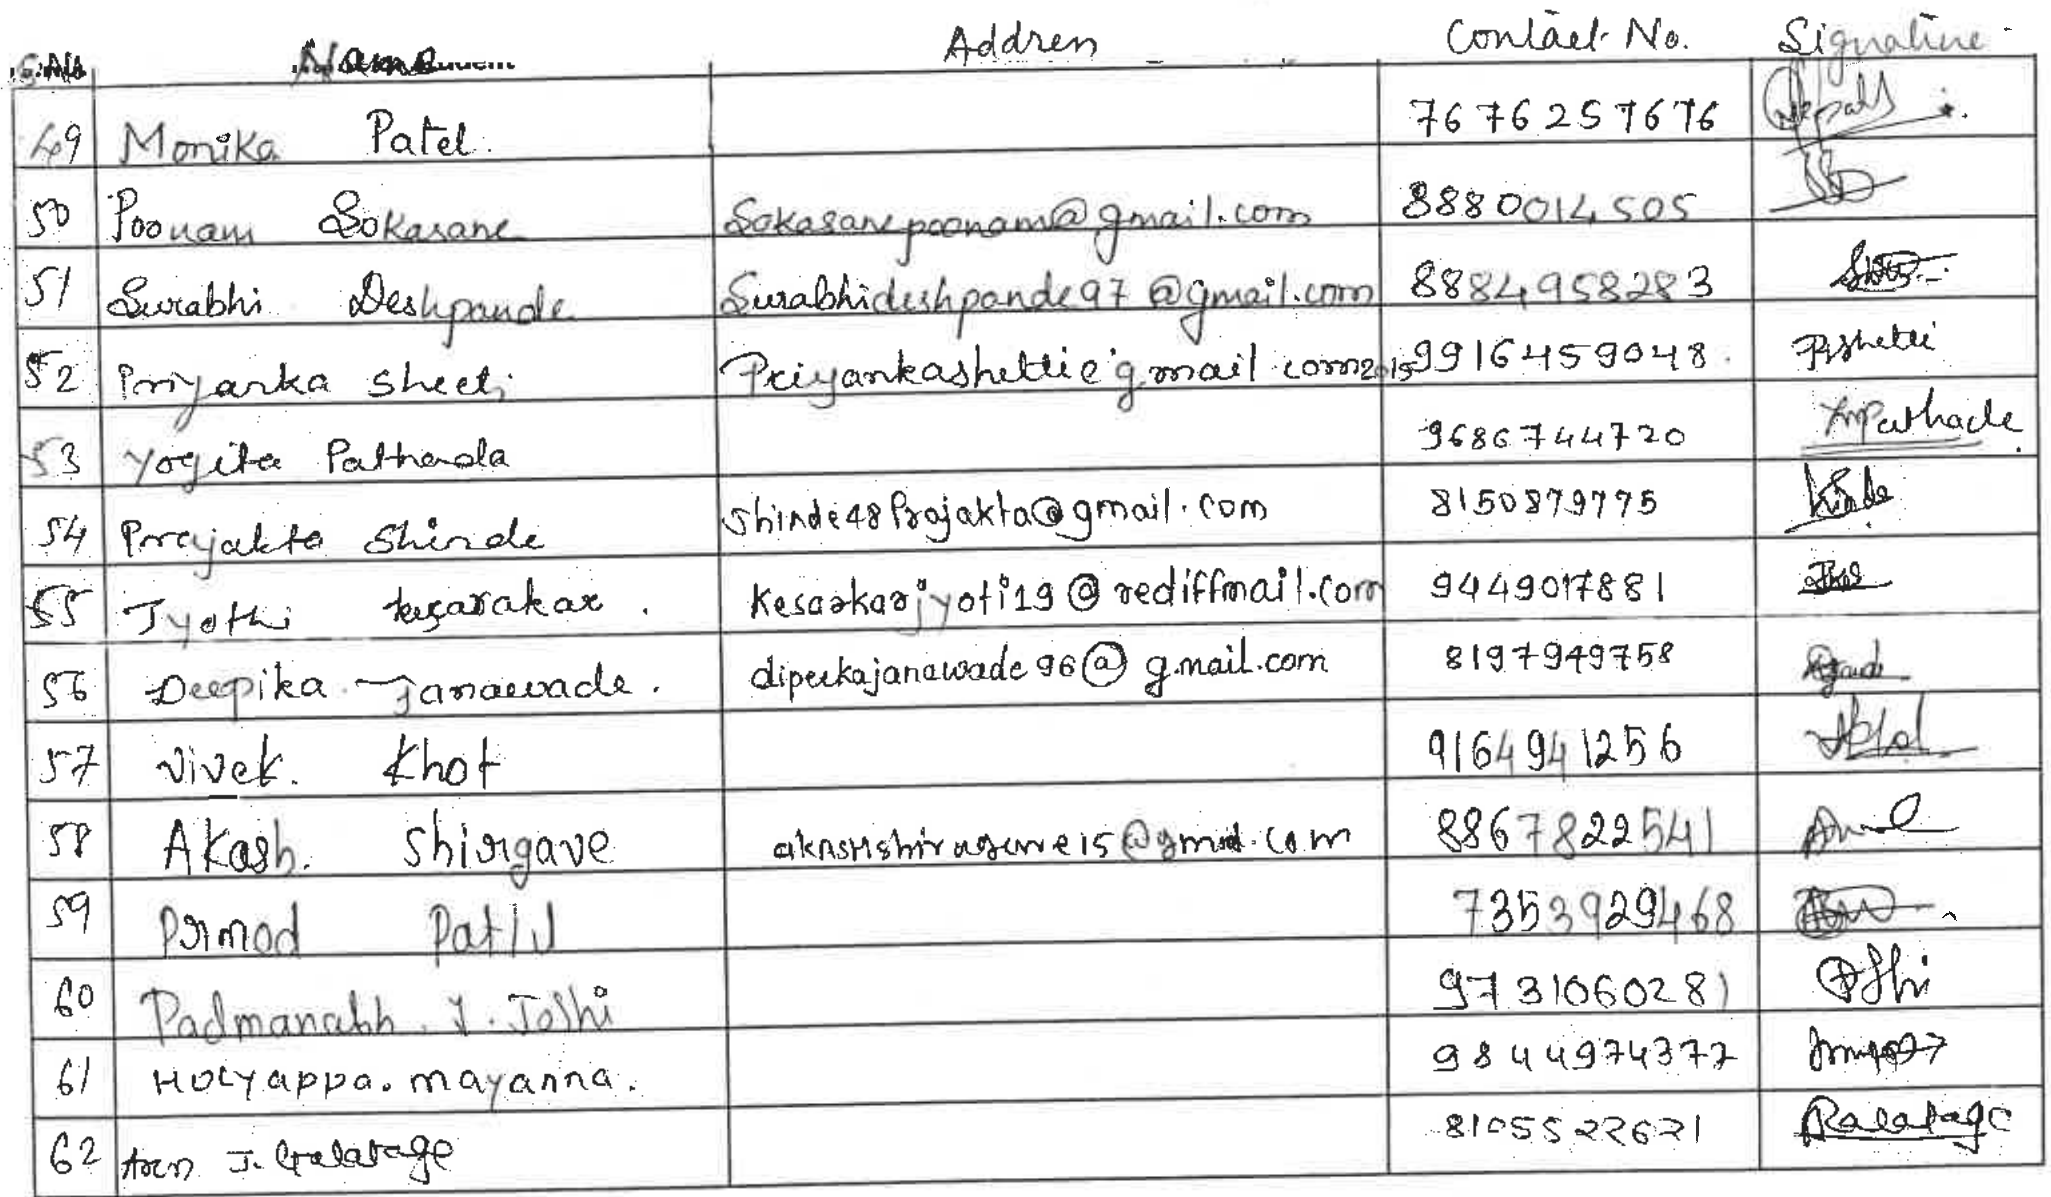 S.No Name Addren Contact No. Signature
49 Monika Patel. 7676257676
50 Poonam Sokasane Sokasanepoonam@gmail.com 8880014505
51 Surabhi Deshpande Surabhideshpande97@gmail.com 8884958283
52 Priyanka Sheeti Priyankashettie gmail com2015 9916459048 Pshetti
53 Yogita Pathada 9686744720 Pathade
54 Prajakta Shinde Shinde48Prajakta@gmail.com 8150879775
55 Jyothi kesarakar. Kesarkarjyoti19@rediffmail.com 9449017881
56 Deepika Janawade. dipeekajanawade96@g.mail.com 8197949758
57 Vivek. Khot 9164941256
58 Akash. Shirgave 8867822541
59 Prmod Patil 7353929468
60 Padmanabh. J. Joshi 9731060281
61 Holyappa. mayanna. 9844974377
62 J. Galatage 8105522621